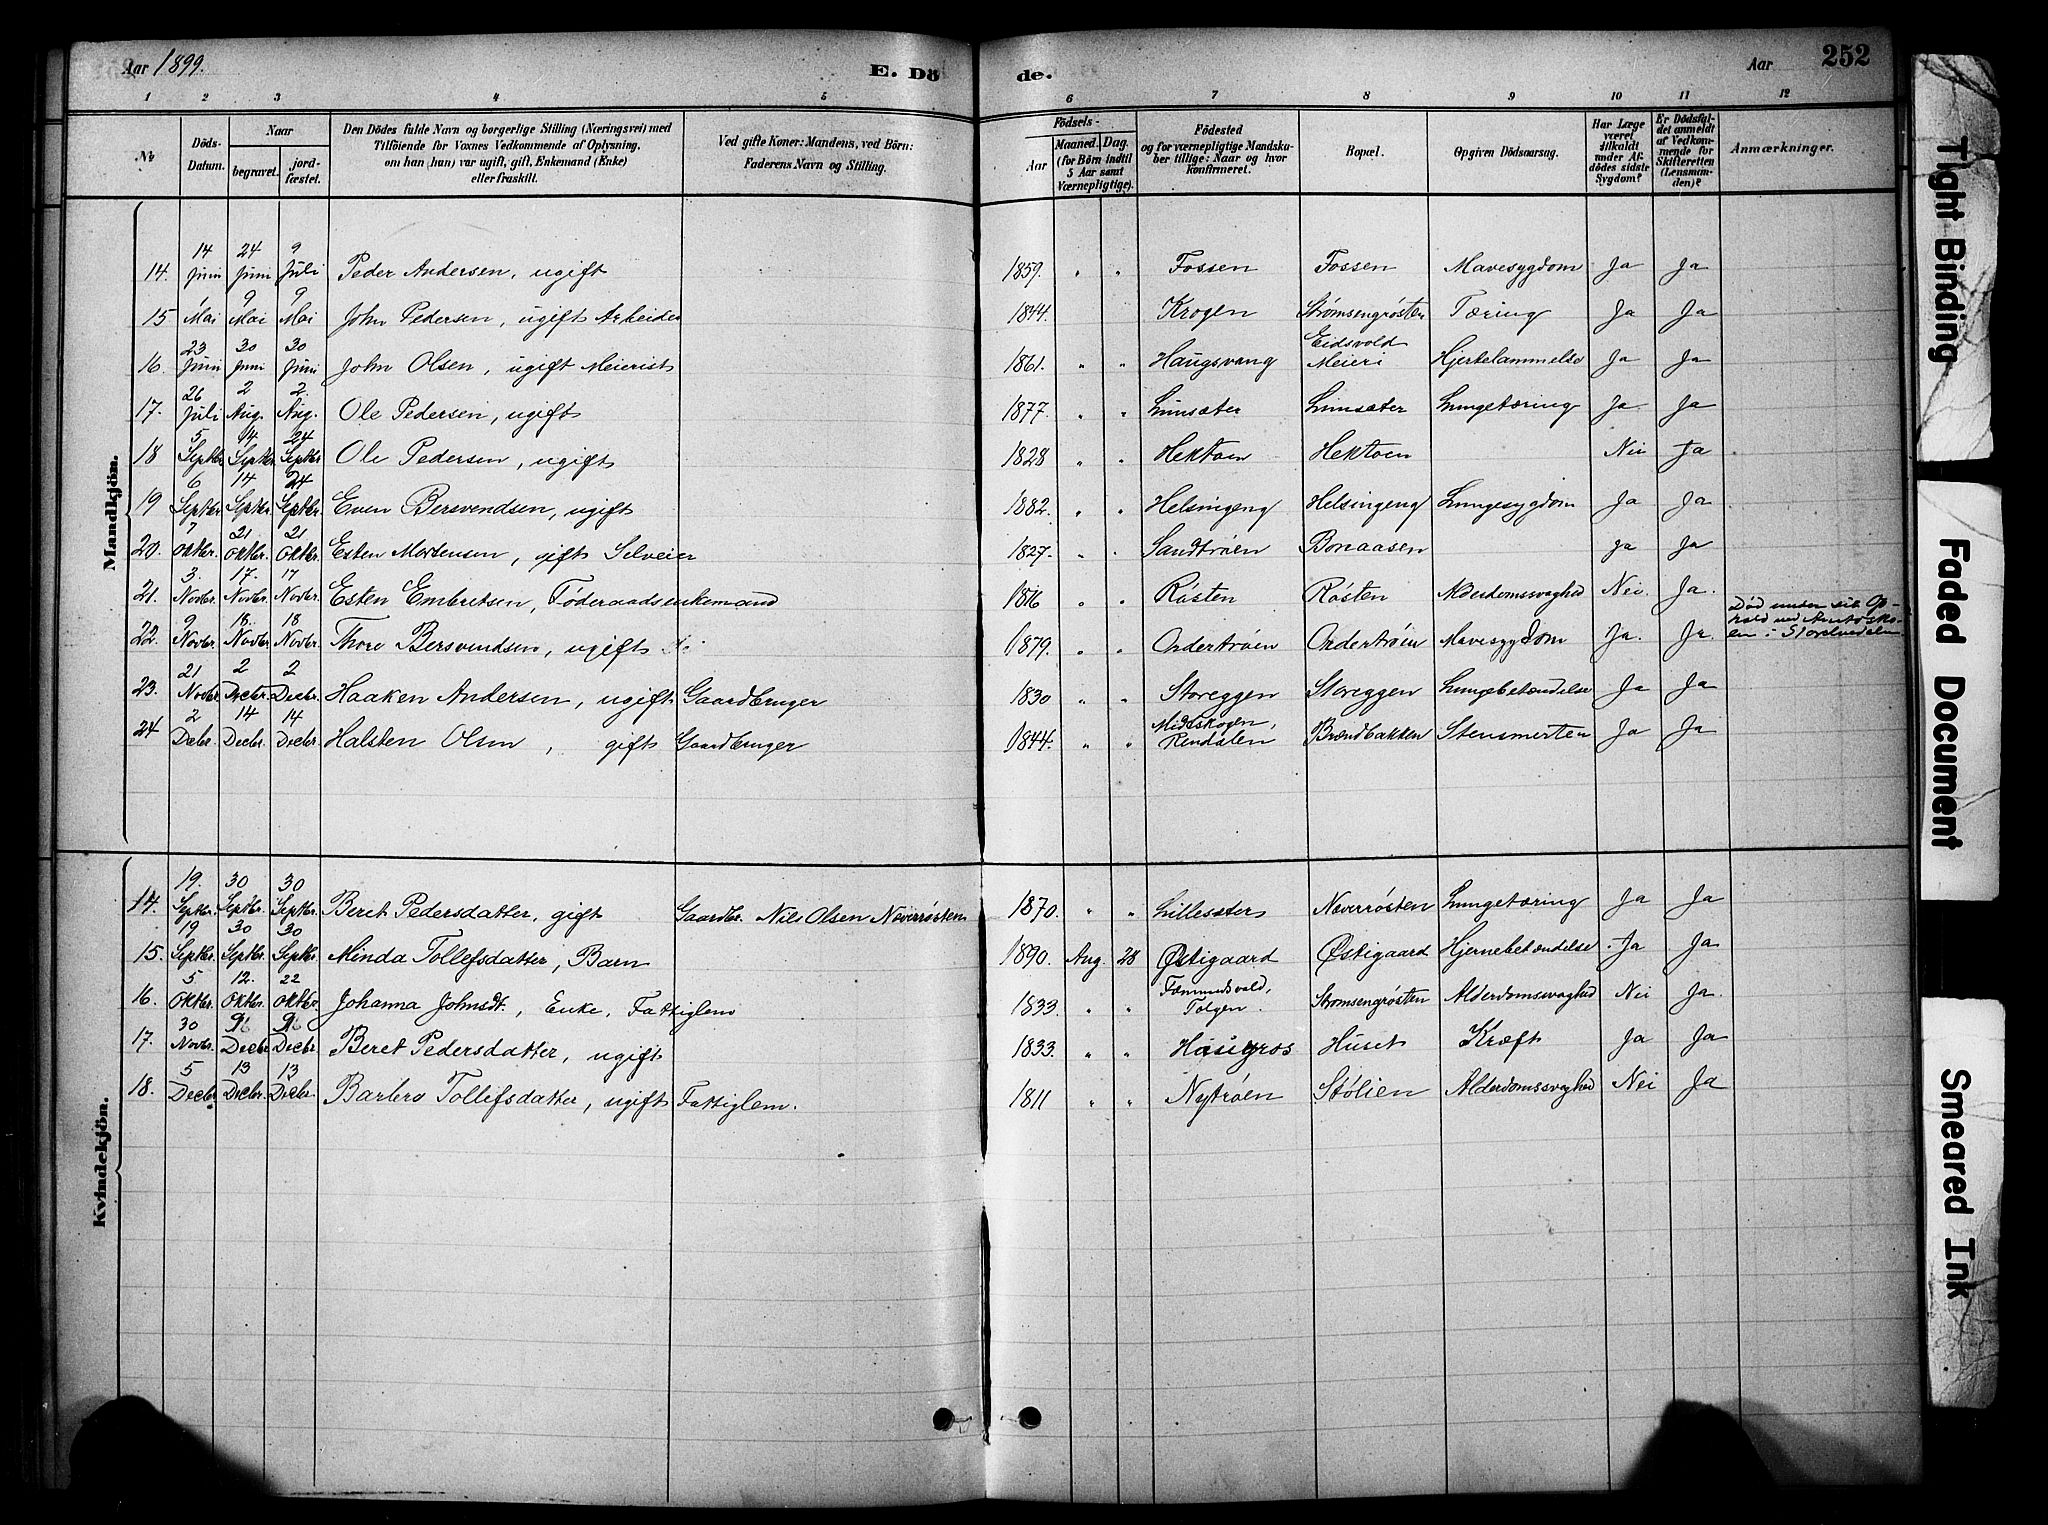 Aar 1899.
E. Dö
de.
Aar
252
1 2 3 4 5 6 7 8 9 10 11 12
No
Döds-Datum.
Naar
begravet.
jordfæstet.
Den Dödes fulde Navn og borgerlige Stilling (Næringsvei) med Tilföiende for Voxnes Vedkommende af Oplysning, om han (hun) var ugift, gift, Enkemand (Enke) eller fraskilt.
Ved gifte Koner: Mandens, ved Börn: Faderens Navn og Stilling.
Födsels-
Aar
Maaned. Dag.
(for Börn indtil 5 Aar samt Værnepligtige).
Födested og for værnepligtige Mandskaber tillige: Naar og hvor konfirmeret.
Bopæl.
Opgiven Dödsaarsag.
Har Læge været tilkaldt under Afdödes sidste Sygdom?
Er Dödsfaldet anmeldt af Vedkommende for Skifteretten (Lensmanden)?
Anmærkninger.
Mandkjön.
14. 14 Juni 24 Juni 9 Juli Peder Andersen, ugift 1859. " " Fossen Fossen Mavesygdom Ja Ja
15 1 Mai 9 Mai 9 Mai John Pedersen, ugift Arbeider 1844. Krogen Strømsengrøsten Tæring Ja Ja
16. 23 Juni 30 Juni 30 Juni John Olsen, ugift Meierist 1861. " " Haugsvang Eidsvold Meieri Hjertelammelse Ja Ja
17. 26 Juli 2 Aug. 2. Aug. Ole Pedersen, ugift 1877. " " Lunsæter Lunsæter Lungetæring Ja Ja
18 5 Septbr 14 Septbr 24 Septbr Ole Pedersen, ugift 1828 " " Hektoen Hektoen Nei Ja
19 6 Septbr. 14 Septbr. 24 Septbr. Even Bersvendsen, ugift 1882. " " Helsingeng Helsingeng Lungesygdom Ja Ja
20. 7 Oktbr. 21 Oktbr. 21 Oktbr. Esten Mortensen, gift Selveier 1827. " " Sandtrøen Bonaasen Ja Ja
21. 3. Novbr. 17. Novbr. 17 Novbr. Esten Embretsen, Føderaadsenkemand 1816 " " Røsten Røsten Alderdomssvaghed Nei Ja.
22. 9 Novbr. 18. Novbr. 18 Novbr. Thore Bersvendsen, ugift 1879. " " Ordertrøen Ordertrøen Mavesygdom Ja. Ja Død under sit Ophold ved Amtsskolen i Storelvedalen
23. 21 Novbr 2 Decbr. 2 Decbr. Haaken Andersen, ugift Gaardbruger 1830 " " Storeggen Storeggen Lungebetændelse Ja Ja
24 2 Decbr. 14 Decbr. 14 Decbr. Halsten Olsen, gift Gaardbruger 1844. " " Midtskogen, Rendalen Brændbakken Stensmerten Ja Ja
Kvindekjön.
14. 19. Septbr. 30 Septbr. 30 Septbr. Beret Pedersdatter, gift Gaardbr. Nils Olsen Neverrøsten 1870. " " Lillesæter Neverrøsten Lungetæring Ja Ja
15. 19 Septbr. 30 Septbr. 30 Septbr. Minda Tollefsdatter, Barn 1890. Aug. 28 Østigaard Østigaard Hjernebetændelse Ja Ja
16. 5 Oktbr. 12. Oktbr. 22 Oktbr. Johanna Johnsdt., Enke, Fattiglem 1833. " " Fæmundsvold, Tolgen. Strømsengrøsten Alderdomssvaghed Nei Ja.
17. 30 Novbr. Decbr Decbr. Beret Pedersdatter, ugift 1833 " " Huset Kræft Ja Ja
18. 5 Decbr. 13 Decbr. 13 Decbr. Barbro Tollefsdatter, ugift Fattiglem. 1811 " " Nytrøen Stølien Alderdomssvaghed Nei Ja
Tight Binding
Faded Document
Smeared Ink